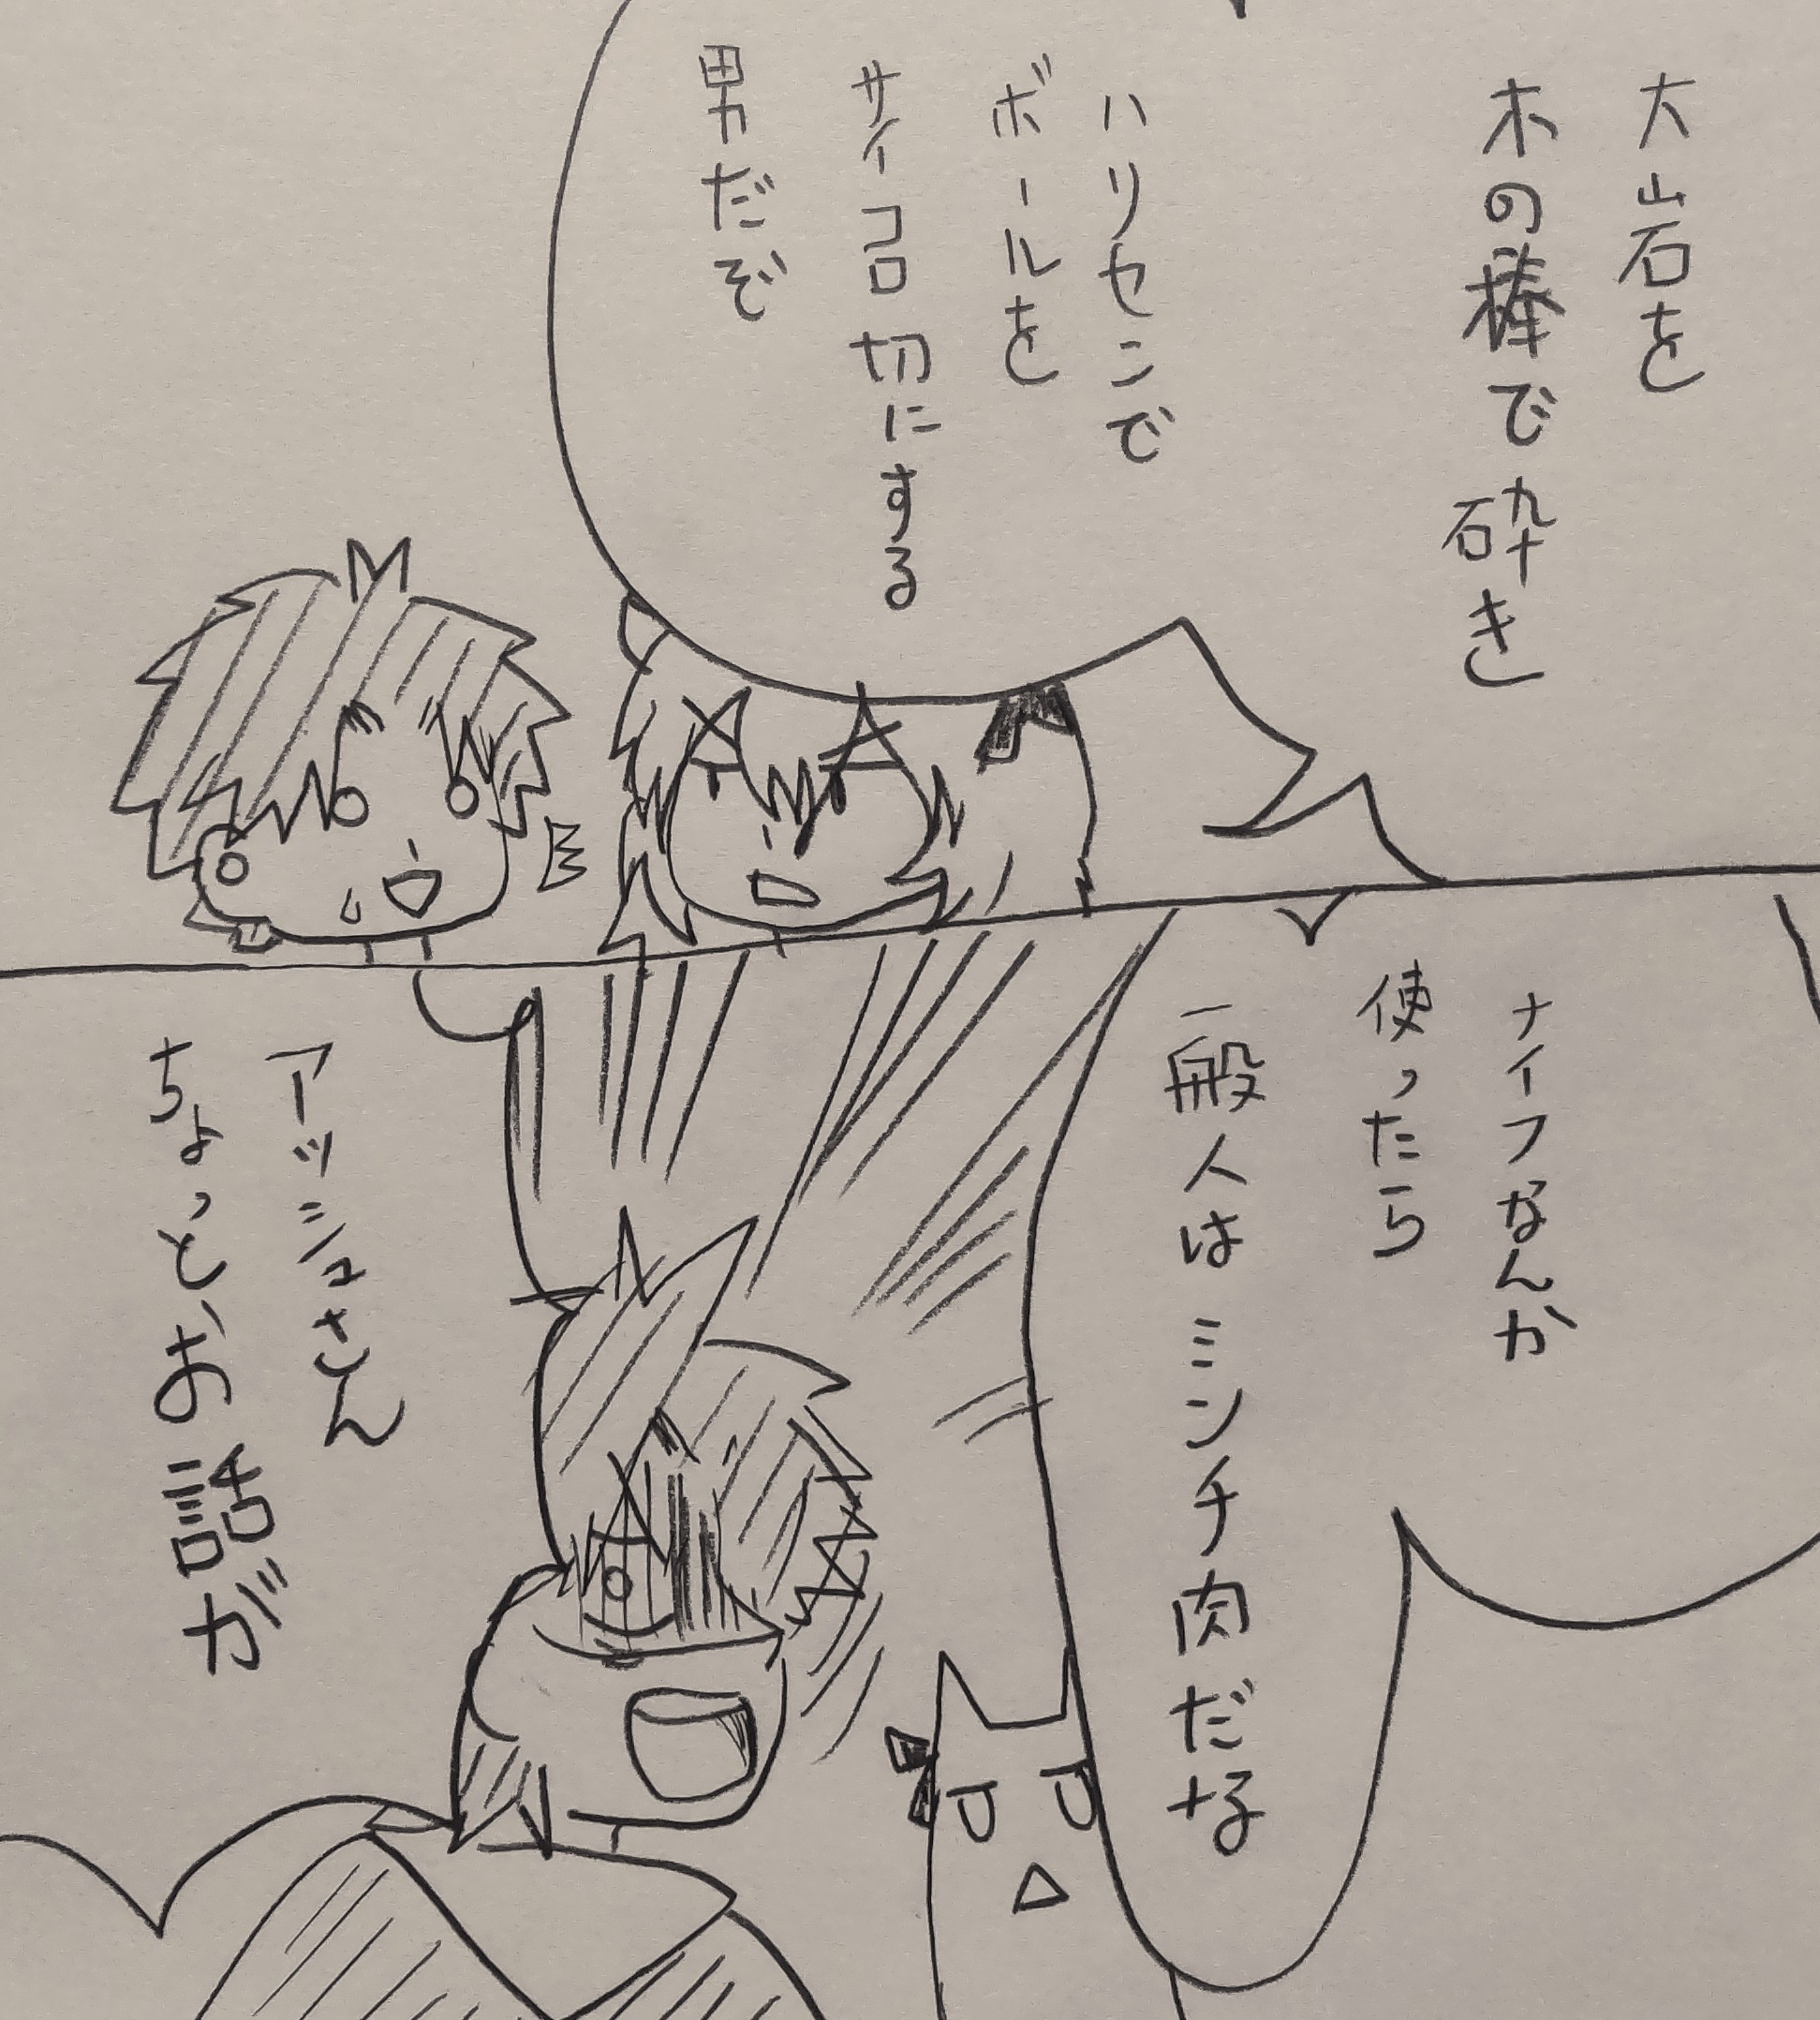 大岩を
木の棒で砕き
ハリセンで
ボールを
サイコロ切にする
男だぞ
ナイフなんか
使ったら
一般人はミンチ肉だな
アッシュさん
ちょっと、お話が